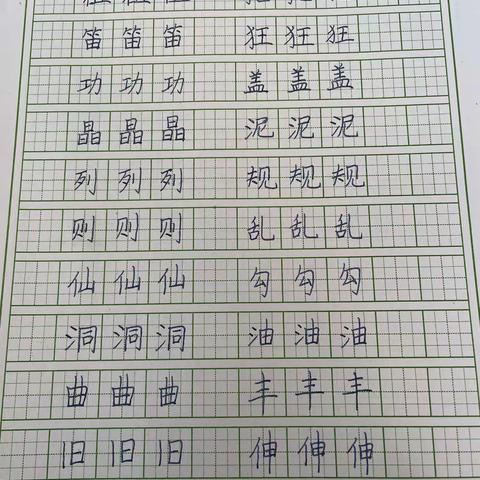 笛笛笛 狂狂狂
功功功 盖盖盖
晶晶晶 泥泥泥
列列列 规规规
则则则 乱乱乱
仙仙仙 勾勾勾
洞洞洞 油油油
曲曲曲 丰丰丰
旧旧旧 伸伸伸